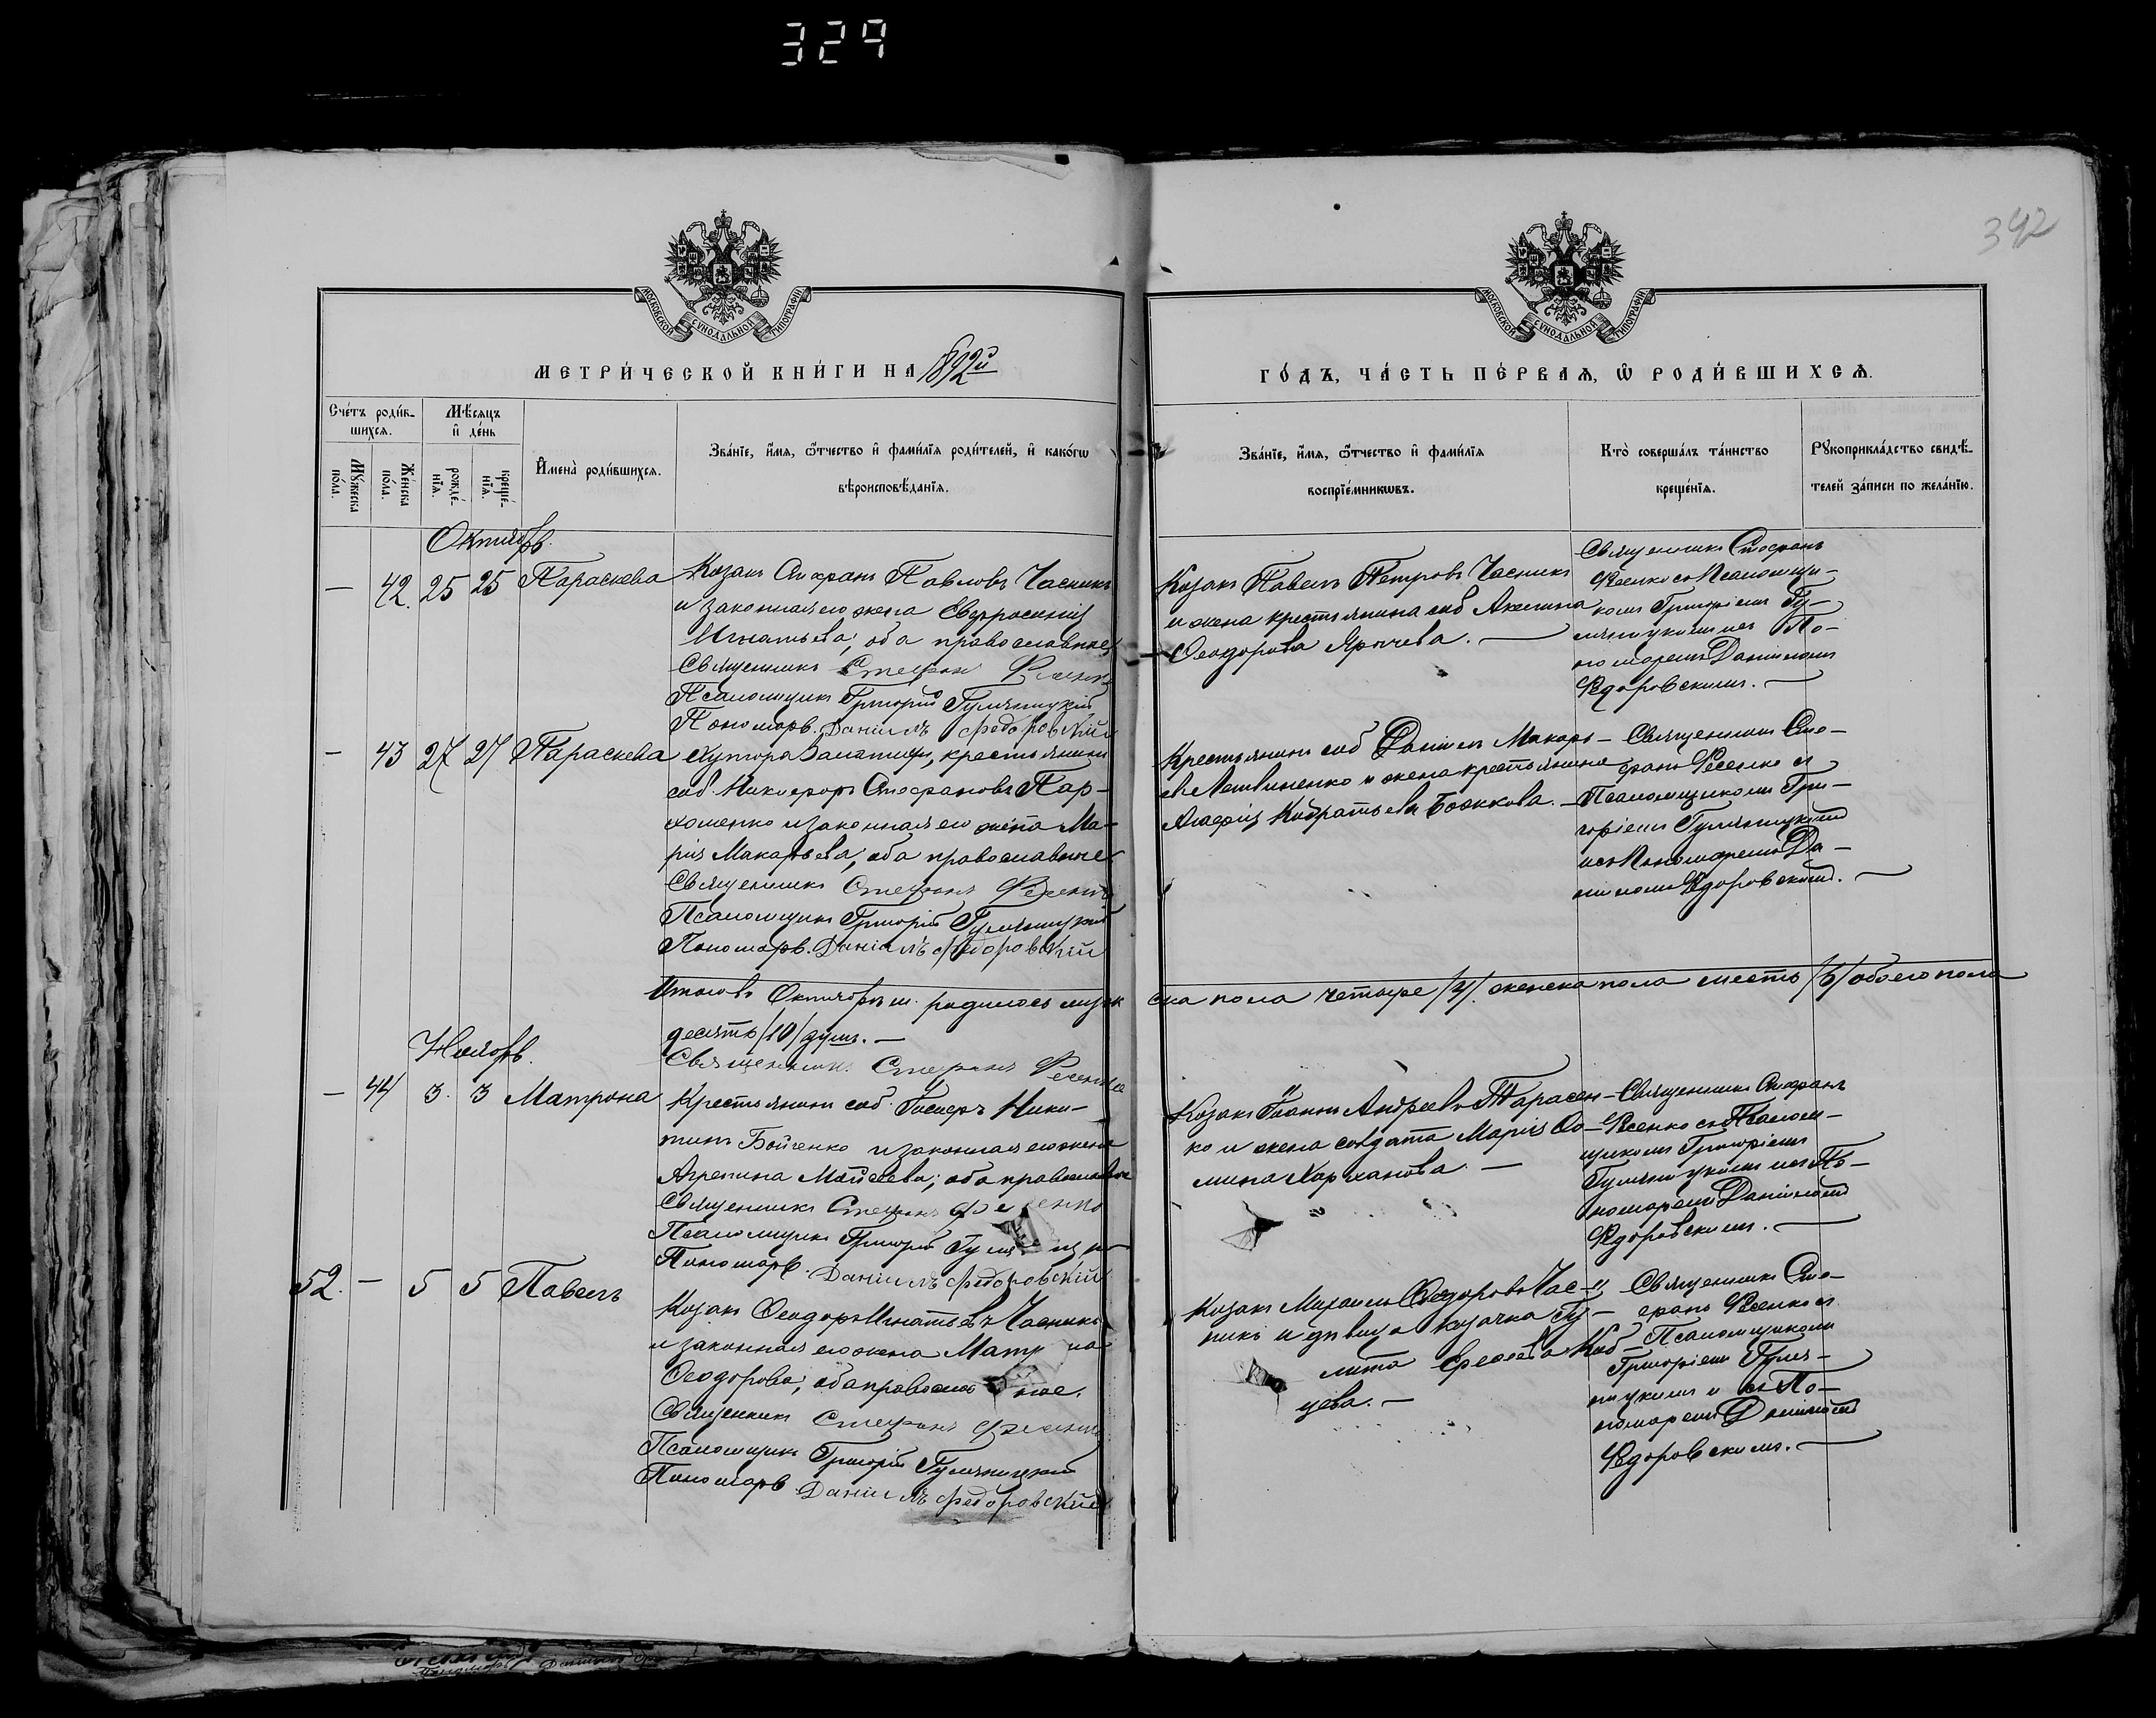 329
342
МОСКОВСКОЙ СѴНОДАЛЬНОЙ ТИПОГРАФІИ
МОСКОВСКОЙ СѴНОДАЛЬНОЙ ТИПОГРАФІИ
МЕТРИ́ЧЕСКОЙ КНИ́ГИ НА 1892й
ГО́ДЪ, ЧА́СТЬ ПЕ́РВАѦ, Ѡ РОДИ́ВШИХСѦ.
Сче́тъ роди́в-
шихсѧ.
Мꙋ́жеска по́ла.
Же́нска по́ла.
Мѣ́сѧцъ и҆ де́нь
рожде́-нїѧ.
креще́-нїѧ.
И҆мена̀ роди́вшихсѧ.
Зва́нїе, и҆́мѧ, ѻ҆́тчество и҆ фами́лїѧ роди́телей, и҆ како́гѡ
вѣроисповѣ́данїѧ.
Зва́нїе, и҆́мѧ, ѻ҆́тчество и҆ фами́лїѧ
воспрїе́мникѡвъ.
Кто̀ соверша́лъ та́инство
креще́нїѧ.
Рꙋкоприкла́дство свидѣ́-
телей за́писи по жела́нїю.
Октябрь.
— 42. 25 25 Параскева
Козакъ Стефанъ Павловъ Часникъ
и законная его жена Евфросинія
Игнатьева; оба православные
Священникъ Стефан Фесенко
Псаломщикъ Григорій Гуляницкій
Пономарь. Даніилъ Федоровскій
Козакъ Павелъ Петровъ Часникъ
и жена крестьянина соб Акилина
Ѳеодорова Яричева. —
Священникъ Стефанъ
Фесенко съ Псаломщи-
комъ Григоріемъ Гу-
ляницкимъ и съ По-
номаремъ Даніиломъ
Федоровскимъ. —
— 43 27 27 Параскева
Хутора крестьянинъ
соб. Никифоръ Стефановъ Пар-
хоменко и законная его жена Ма-
рія Макарьева; оба православные
Священникъ Стефанъ Фесенко
Псаломщикъ Григорій Гуляницкій
Пономарь. Даніилъ Федоровскій
Крестьянинъ соб Даніилъ Макарь-
евъ Литвиненко и жена крестьянина
Божкова. —
Священникъ Сте-
фанъ Фесенко съ
Псаломщикомъ Гри-
горіемъ Гуляницкимъ
и съ Пономаремъ Да-
ніиломъ Федоровскимъ. —
Итого въ Октябрѣ м. родилось муж
ска пола четыре /4/. женска пола шесть /6/ обоего пола
десять /10/ душъ. —
Священникъ Стефанъ Фесенко
Ноябрь.
— 44 3. 3 Матрона
Крестьянинъ соб. Ники-
тинъ Бойченко и законная его жена
Агрепина Моисеева; оба православные
Священникъ Стефанъ Фесенко
Псаломщикъ Григорій
Пономарь. Даніилъ Федоровскій
Козакъ Іоаннъ Андреевъ Тарасен-
ко и жена солдата Марія Ѳо-
мина Харланова. —
Священникъ Стефанъ
Фесенко съ Псалом-
щикомъ Григоріемъ
Гуляницкимъ и съ По-
номаремъ Даніиломъ
Федоровскимъ. —
52. — 5 5 Павелъ
Козакъ Ѳеодоръ Игнатьевъ Часникъ
и законная его жена Матрона
Ѳеодорова; оба православные.
Священникъ Стефанъ Фесенко
Псаломщикъ Григорій Гуляницкій
Пономарь Даніилъ Федоровскій
Козакъ Михаилъ Ѳеодоровъ Час-
никъ и дѣвица козачка Іу-
лита Коб-
цева. —
Священникъ Сте-
фанъ Фесенко съ
Псаломщикомъ
Григоріемъ Гуля-
ницкимъ и съ По-
номаремъ Даніиломъ
Федоровскимъ. —